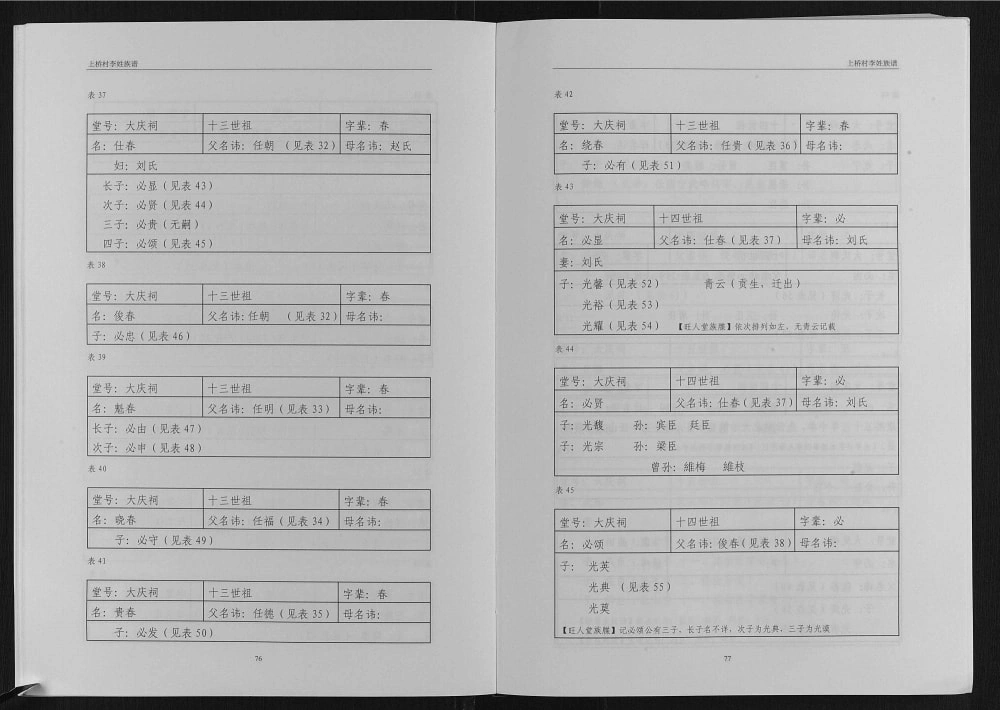 上桥村李姓族谱
表 37
堂号：大庆祠 十三世祖 字辈：春
名：仕春 父名讳：任朝 （见表 32） 母名讳：赵氏
妇：刘氏
长子：必显（见表 43）
次子：必贤（见表 44）
三子：必贵（无嗣）
四子：必颂（见表 45）
表 38
堂号：大庆祠 十三世祖 字辈：春
名：俊春 父名讳：任朝 （见表 32） 母名讳：
子：必忠（见表 46）
表 39
堂号：大庆祠 十三世祖 字辈：春
名：魁春 父名讳：任明（见表 33） 母名讳：
长子：必由（见表 47）
次子：必申（见表 48）
表 40
堂号：大庆祠 十三世祖 字辈：春
名：晓春 父名讳：任福（见表 34） 母名讳：
子：必守（见表 49）
表 41
堂号：大庆祠 十三世祖 字辈：春
名：贵春 父名讳：任德（见表 35） 母名讳：
子：必发（见表 50）
76
上桥村李姓族谱
表 42
堂号：大庆祠 十三世祖 字辈：春
名：绕春 父名讳：任贵（见表 36） 母名讳：
子：必有（见表 51）
表 43
堂号：大庆祠 十四世祖 字辈：必
名：必显 父名讳：仕春（见表 37） 母名讳：刘氏
妻：刘氏
子：光馨（见表 52） 青云（贡生，迁出）
光裕（见表 53）
光耀（见表 54） 【旺人堂族牒】依次排列如左，无青云记载
表 44
堂号：大庆祠 十四世祖 字辈：必
名：必贤 父名讳：仕春（见表 37） 母名讳：刘氏
子：光馥 孙：宾臣 廷臣
子：光宗 孙：梁臣
曾孙：維梅 維枝
表 45
堂号：大庆祠 十四世祖 字辈：必
名：必颂 父名讳：俊春（见表 38） 母名讳：
子： 光英
光典 （见表 55）
光莫
【旺人堂族牒】记必颂公有三子，长子名不详，次子为光典，三子为光谟
77